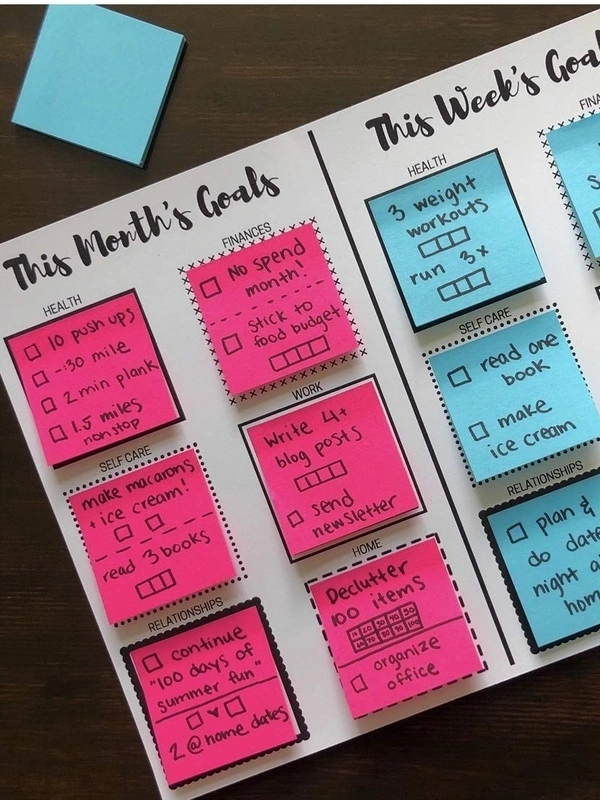 This Month's Goals
HEALTH
10 push ups
-:30 mile
2 min plank
1.5 miles
nonstop
FINANCES
No spend
month!
stick to
food budget
SELF CARE
make macarons
+ ice cream!
read 3 books
WORK
Write 4+
blog posts
send
newsletter
RELATIONSHIPS
continue
"100 days of
summer fun"
2 @home dates
HOME
Declutter
100 items
10 20 30 40 50
60 70 80 90 100
organize
office
This Week's Goal
HEALTH
3 weight
workouts
run 3x
FINA
S
SELF CARE
read one
book
make
ice cream
RELATIONSHIPS
plan &
do date
night a
hom